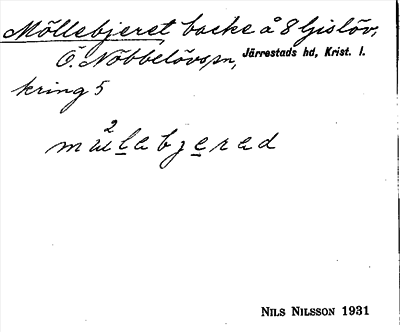 Möllebjeret, backe å 8 Gislöv,
Ö. Nöbbelövs sn, Järrestads hd, Krist. l.
kring 5
NILS NILSSON 1931